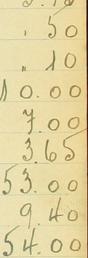 .50
.10
10.00
7.00
3.65
53.00
9.40
54.00